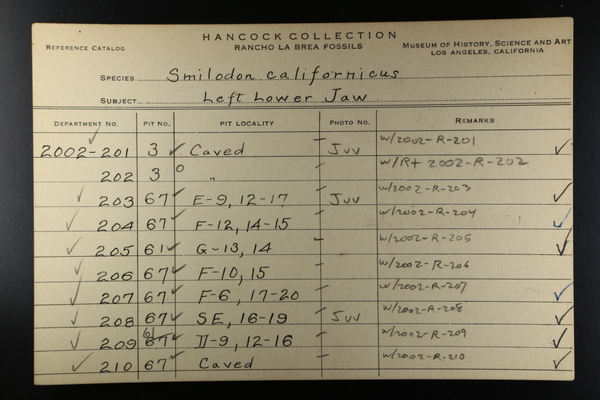 HANCOCK COLLECTION
REFERENCE CATALOG RANCHO LA BREA FOSSILS MUSEUM OF HISTORY, SCIENCE AND ART
LOS ANGELES, CALIFORNIA
SPECIES Smilodon californicus
SUBJECT Left Lower Jaw
DEPARTMENT NO. PIT NO. PIT LOCALITY PHOTO NO. REMARKS
2002-201 3 ✓ Caved — Juv w/2002-R-201 ✓
202 3 ○ " — w/R+ 2002-R-202
✓ 203 67 ✓ E-9, 12-17 — Juv w/2002-R-203 ✓
✓ 204 67 ✓ F-12, 14-15 — w/2002-R-204 ✓
✓ 205 61 ✓ G-13, 14 — w/2002-R-205 ✓
✓ 206 67 ✓ F-10, 15 — w/2002-R-206
✓ 207 67 ✓ F-6, 17-20 — w/2002-R-207 ✓
✓ 208 67 ✓ SE, 16-19 — Juv w/2002-R-208 ✓
✓ 209 61 67 ✓ D-9, 12-16 — w/2002-R-209 ✓
✓ 210 67 ✓ Caved — w/2002-R-210 ✓